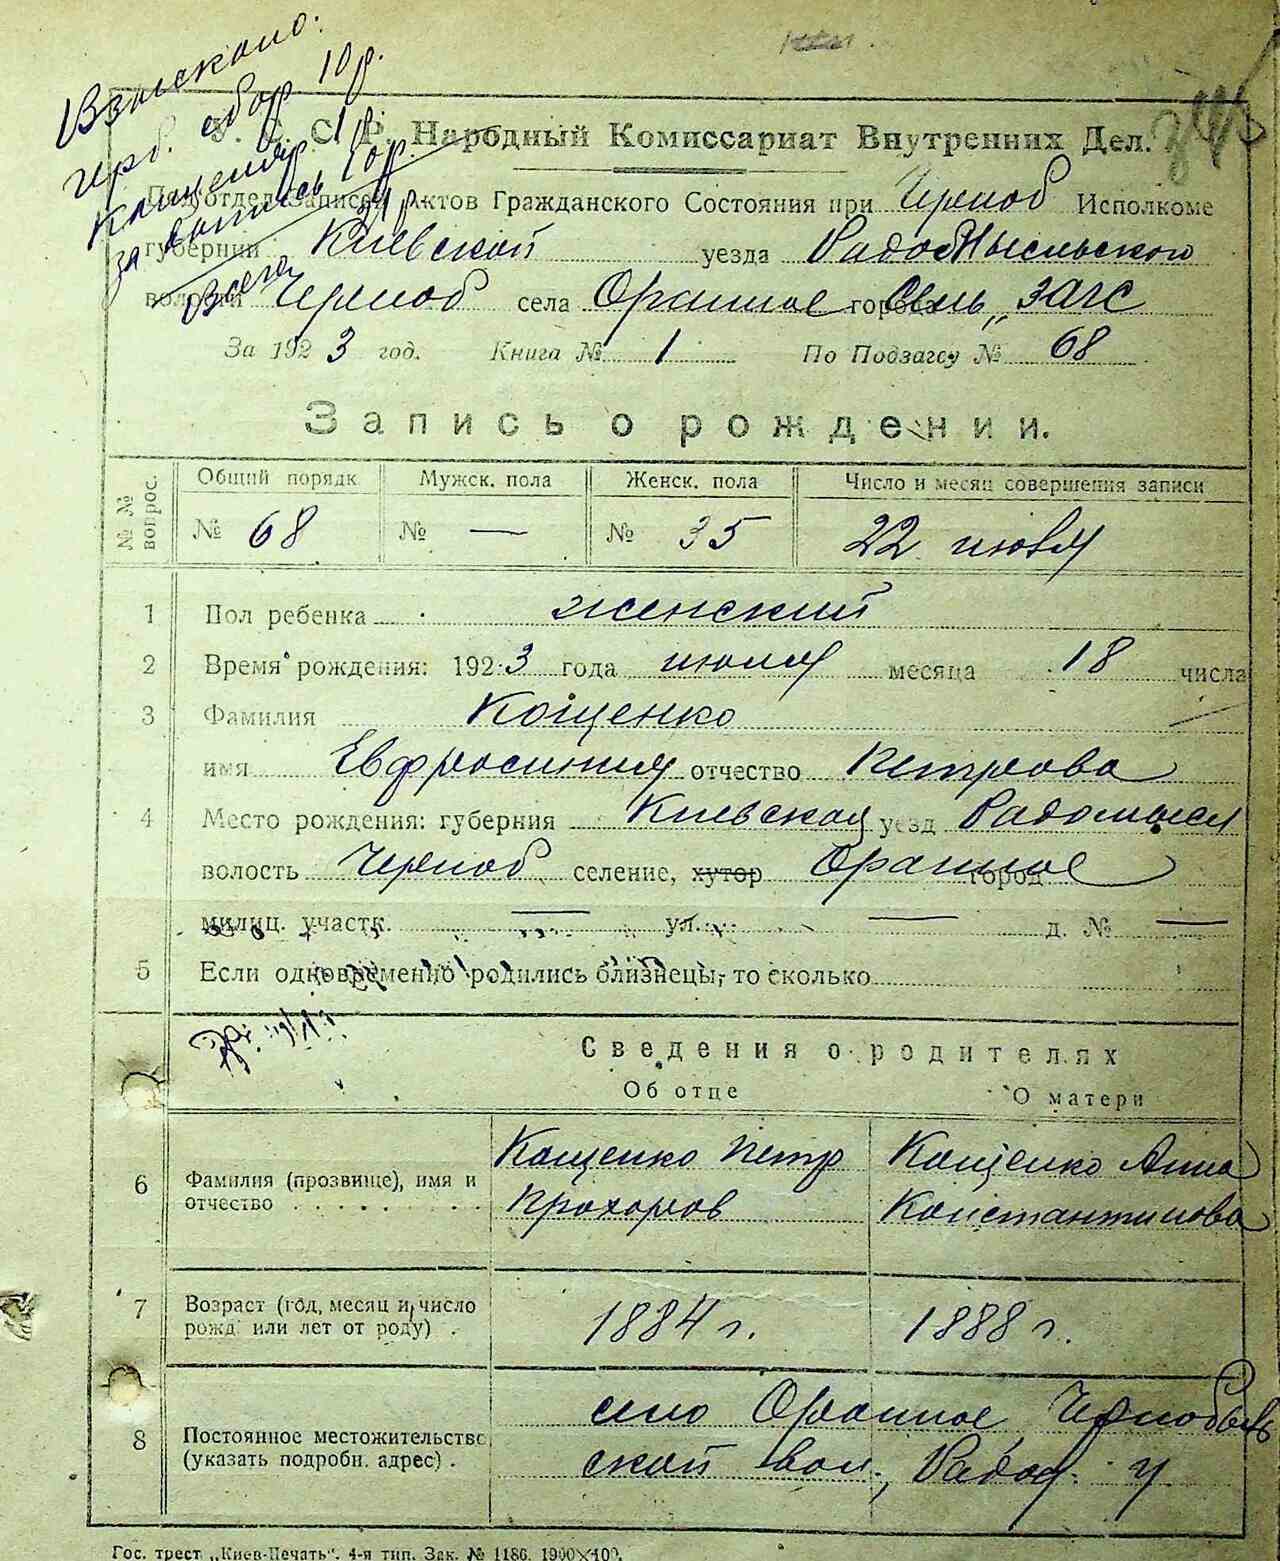 Взыскано:
герб. сбор 10 р.
Канцеляр 1 р.
за запись 10 р.
Всего 21 р.
У. С. С. Р. Народный Комиссариат Внутренних Дел.
Подотдел Записей Актов Гражданского Состояния при Черноб Исполкоме
губернии Киевской уезда Радомысльского
волости Черноб села Оранное города Сель „ЗАГС
За 1923 год. Книга № 1 По Подзагсу № 68
Запись о рождении.
№№ вопрос. Общий порядк Мужск. пола Женск. пола Число и месяц совершения записи
№ 68 № — № 35 22 июля
1 Пол ребенка женский
2 Время рождения: 1923 года июля месяца 18 числа
3 Фамилия Кощенко
имя Евфросиния отчество Петрова
4 Место рождения: губерния Киевская уезд Радомысл
волость Черноб селение, хутор Оранное город
милиц. участк. — ул. — д. № —
5 Если одновременно родились близнецы, то сколько
Сведения о родителях
Об отце О матери
6 Фамилия (прозвище), имя и отчество Кащенко Петр Кащенко Анна
Прохоров Константинова
7 Возраст (год, месяц и число рожд. или лет от роду) 1884 г. 1888 г.
8 Постоянное местожительство (указать подробн. адрес) село Оранное Чернобыль
ской вол., Радом. у
Гос. трест „Киев-Печать“. 4-я тип. Зак. № 1186. 1900×100.